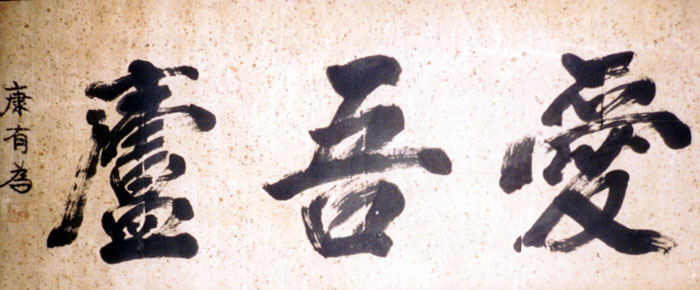 愛吾廬
康有為